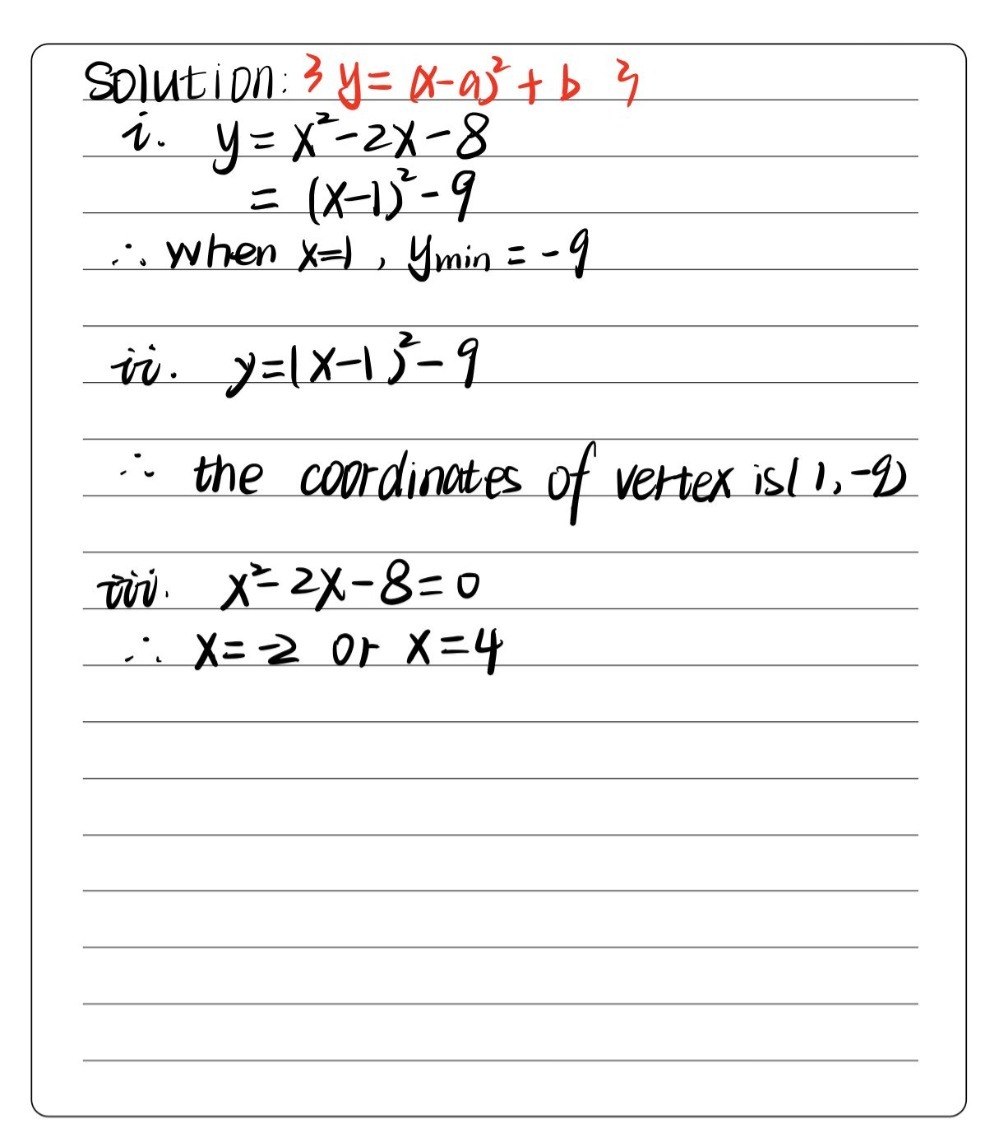 Solution: } y = (x-a)² + b }
i. y = x² - 2x - 8
= (x-1)² - 9
∴ when x=1, ymin = -9
ii. y=(x-1)² - 9
∴ the coordinates of vertex is (1, -9)
iii. x² - 2x - 8 = 0
∴ x = -2 or x = 4